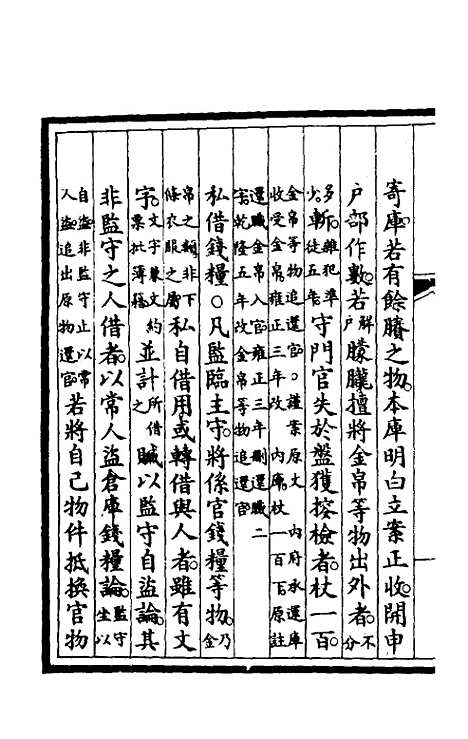 寄庫若有餘賸之物本庫明白立案正收開申
戶部作數若解戶朦朧擅將金帛等物出外者不分
多少斬雜犯準徒五年守門官失於盤獲搜檢者杖一百
金帛等物追還官○謹案原文 內府承運庫
收受金帛雍正三年改 內庫杖一百下原註
還職金帛入官雍正三年刪還職二
字乾隆五年改金帛等物追還官
私借錢糧○凡監臨主守將係官錢糧等物乃金
帛之類非下條衣服之屬私自借用或轉借與人者雖有文
字文字兼文約票批簿籍並計所借之贓以監守自盜論其
非監守之人借者以常人盜倉庫錢糧論監守坐以
自盜非監守止以常人盜追出原物還官若將自己物件抵換官物